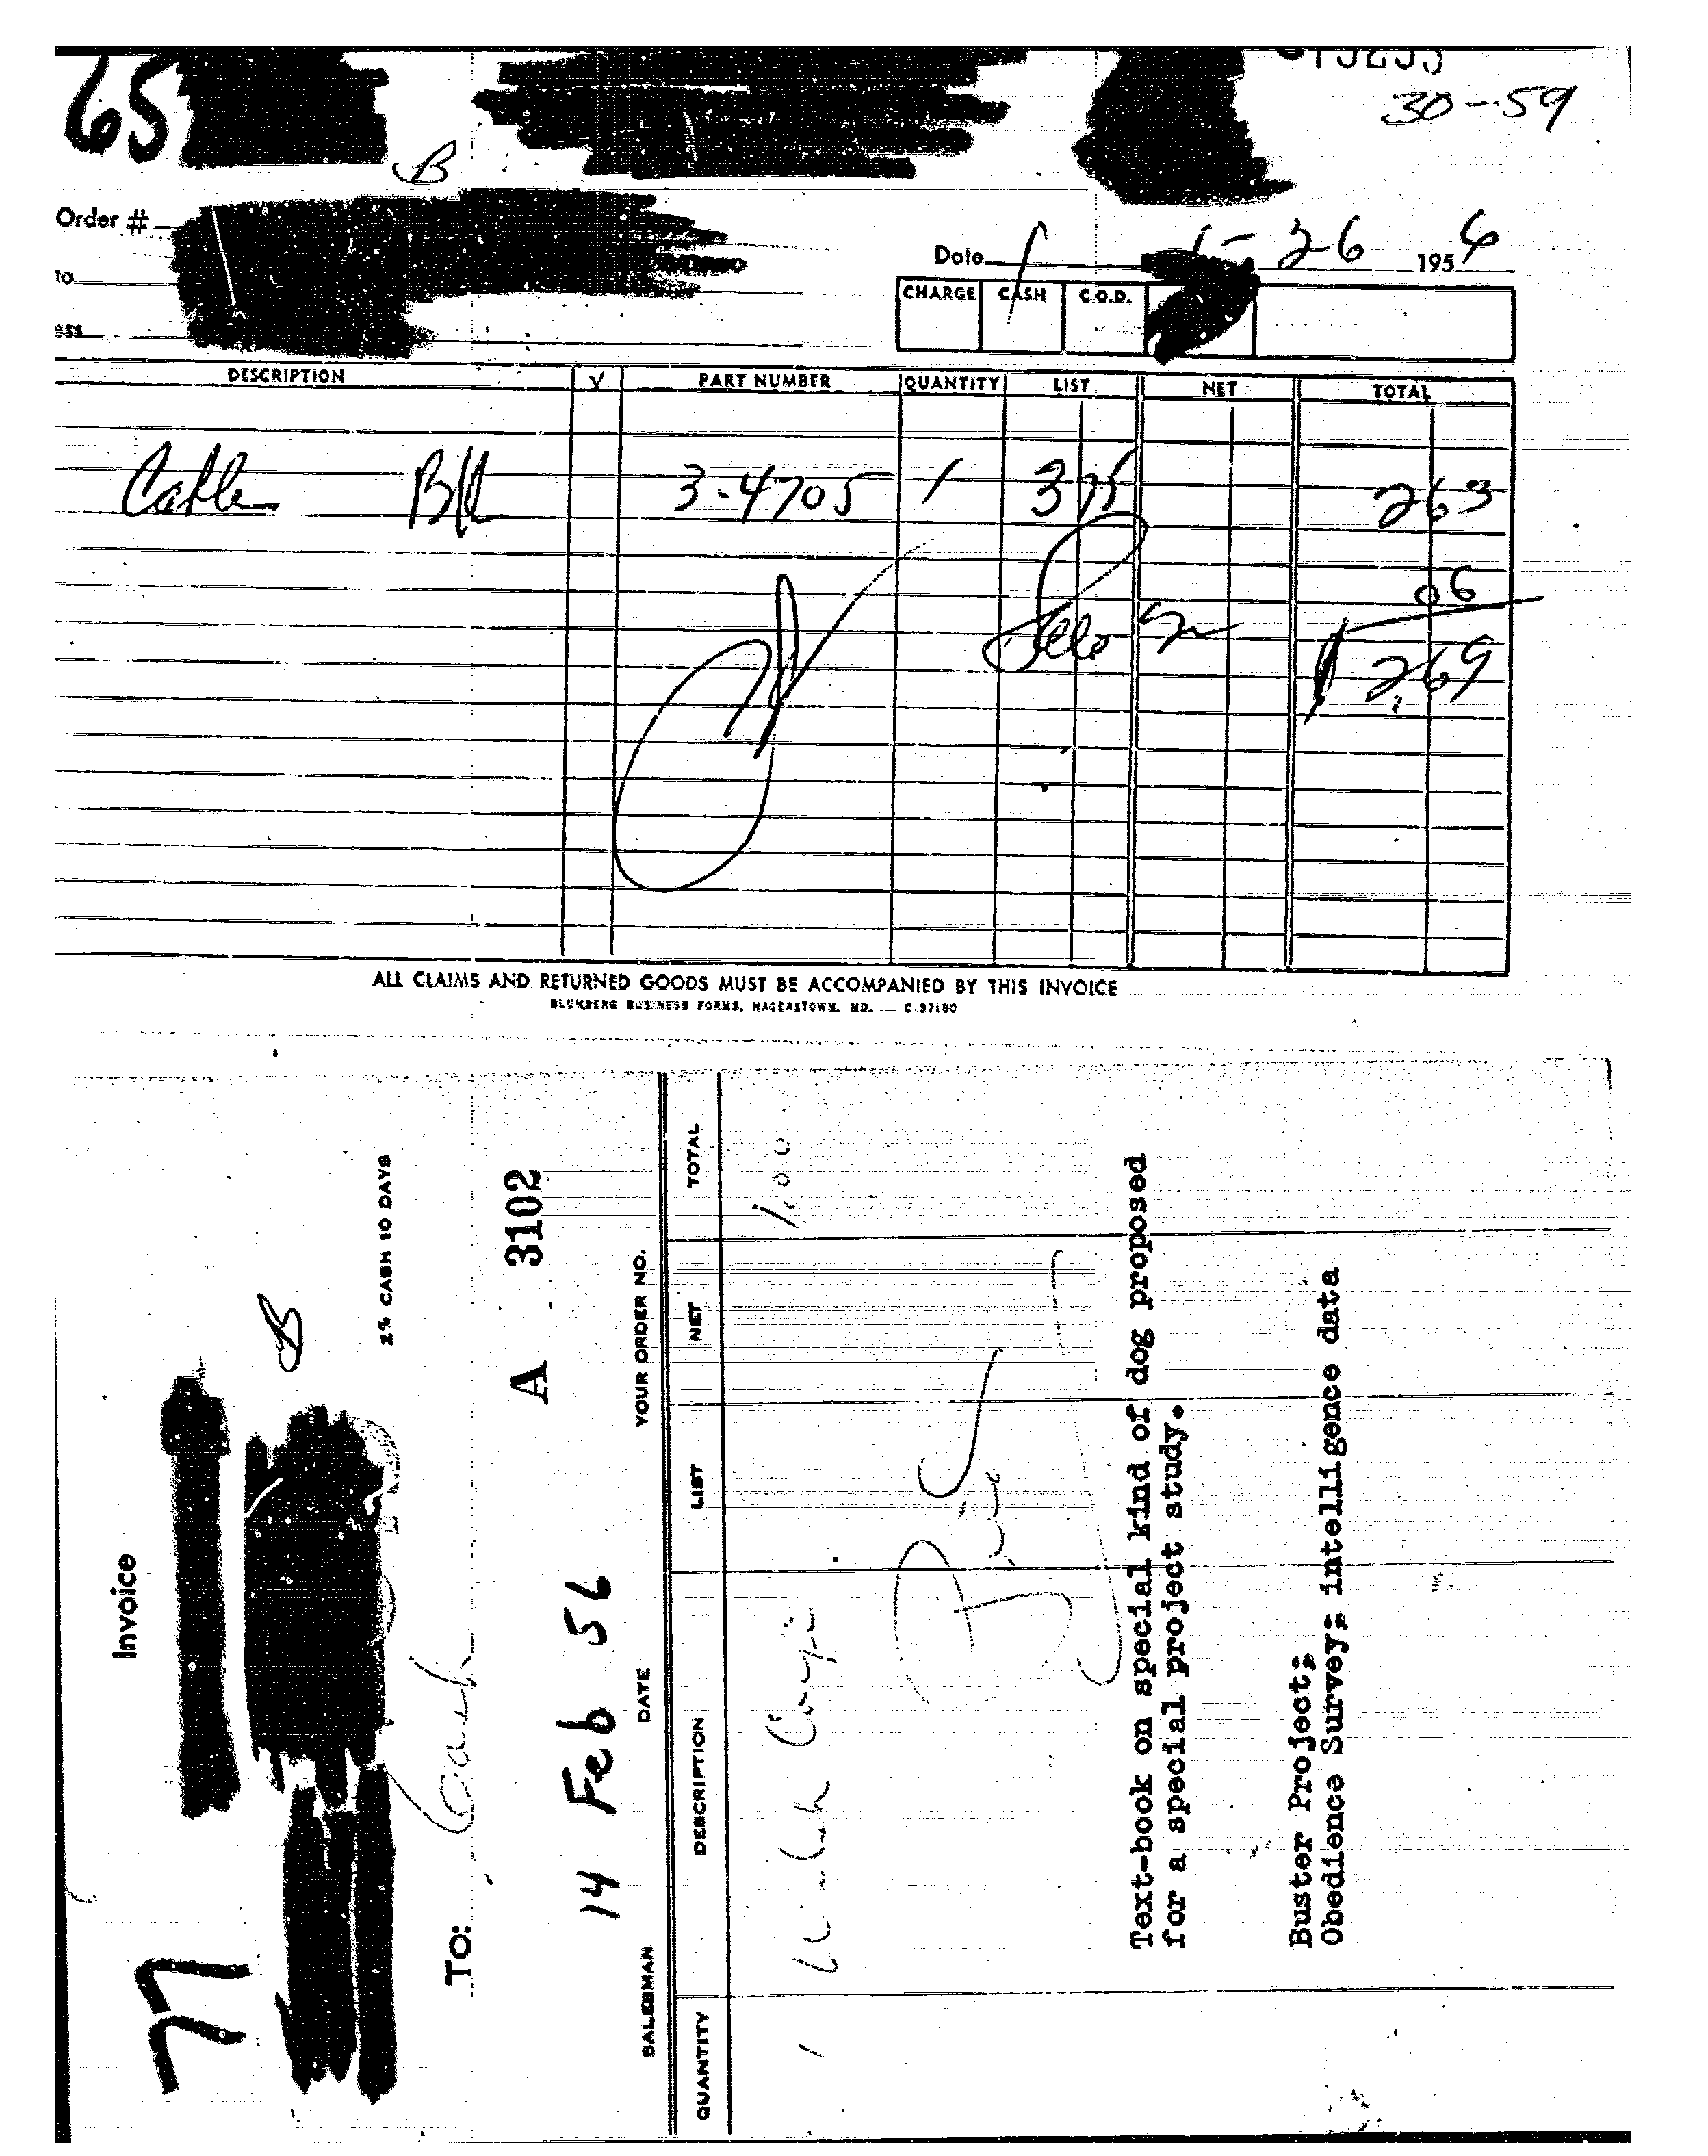 65
30-59
B
Order #
Date 1-26 1956
to
CHARGE CASH C.O.D.
ess
DESCRIPTION V PART NUMBER QUANTITY LIST NET TOTAL
Cable 3-4705 1 375 263
06
$ 2.69
ALL CLAIMS AND RETURNED GOODS MUST BE ACCOMPANIED BY THIS INVOICE
BLUMBERG BUSINESS FORMS, HAGERSTOWN, MD. — C-37180
77
Invoice
B
2% CASH 10 DAYS
TO: Cash
A 3102
14 Feb 56
SALESMAN DATE YOUR ORDER NO.
QUANTITY DESCRIPTION LIST NET TOTAL
1 Welsh Corgi 1.00
Text-book on special kind of dog proposed
for a special project study.
Buster Project;
Obedience Survey; intelligence data